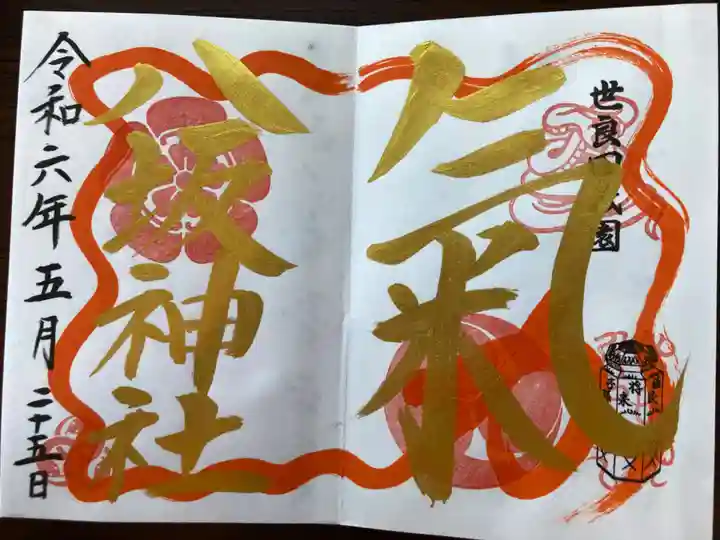 世良田祇園
氣
八坂神社
令和六年五月二十五日
将来